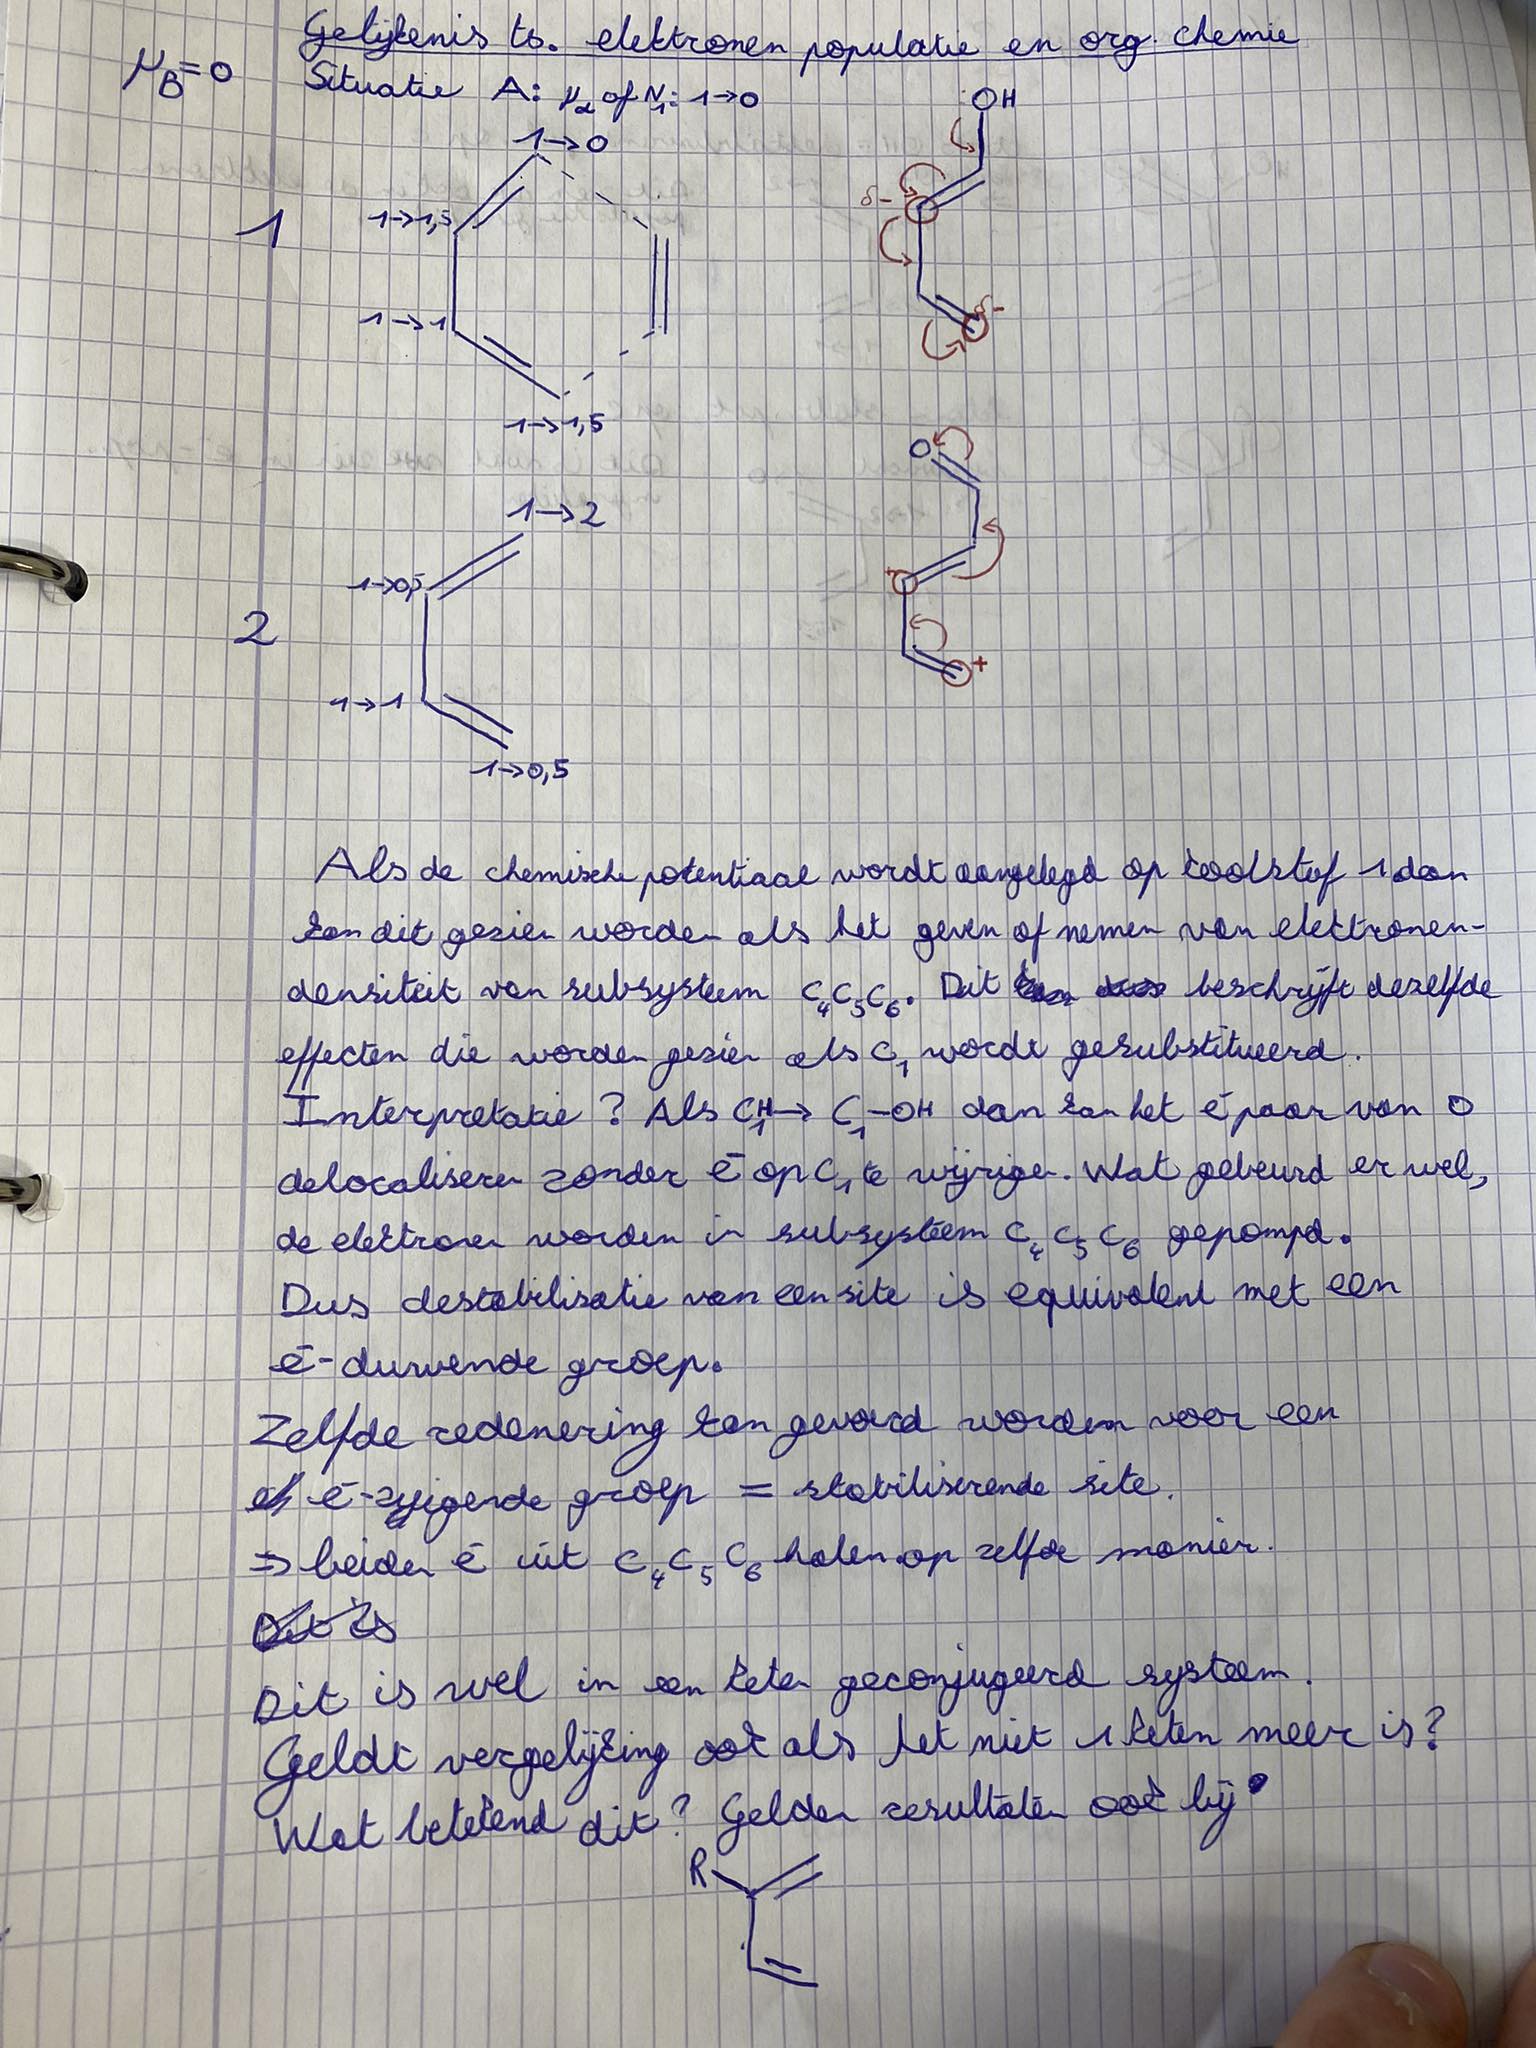 Gelijkenis ts. elektronen populatie en org. chemie
μB=0
Situatie A: μα of N1: 1→0
1
1→0
1→1,5
1→1
1→1,5
OH
δ-
δ-
2
1→2
1→0,5
1→1
1→0,5
O
+
+
Als de chemische potentiaal wordt aangelegd op koolstof 1 dan
kan dit gezien worden als het geven of nemen van elektronen-
densiteit van subsysteem C4C5C6. Dit beschrijft dezelfde
effecten die worden gezien als C1 wordt gesubstitueerd.
Interpretatie? Als C1H→ C1-OH dan kan het e-paar van O
delocaliseren zonder e- op C1 te wijzigen. Wat gebeurd er wel,
de elektronen worden in subsysteem C4C5C6 gepompd.
Dus destabilisatie van een site is equivalent met een
e--duwende groep.
Zelfde redenering kan gevoerd worden voor een
e--zuigende groep = stabiliserende site.
⇒ beiden e- uit C4C5C6 halen op zelfde manier.
Dit is
Dit is wel in een keten geconjugeerd systeem.
Geldt vergelijking ook als het niet 1 keten meer is?
Wat betekend dit? Gelden resultaten ook bij
R